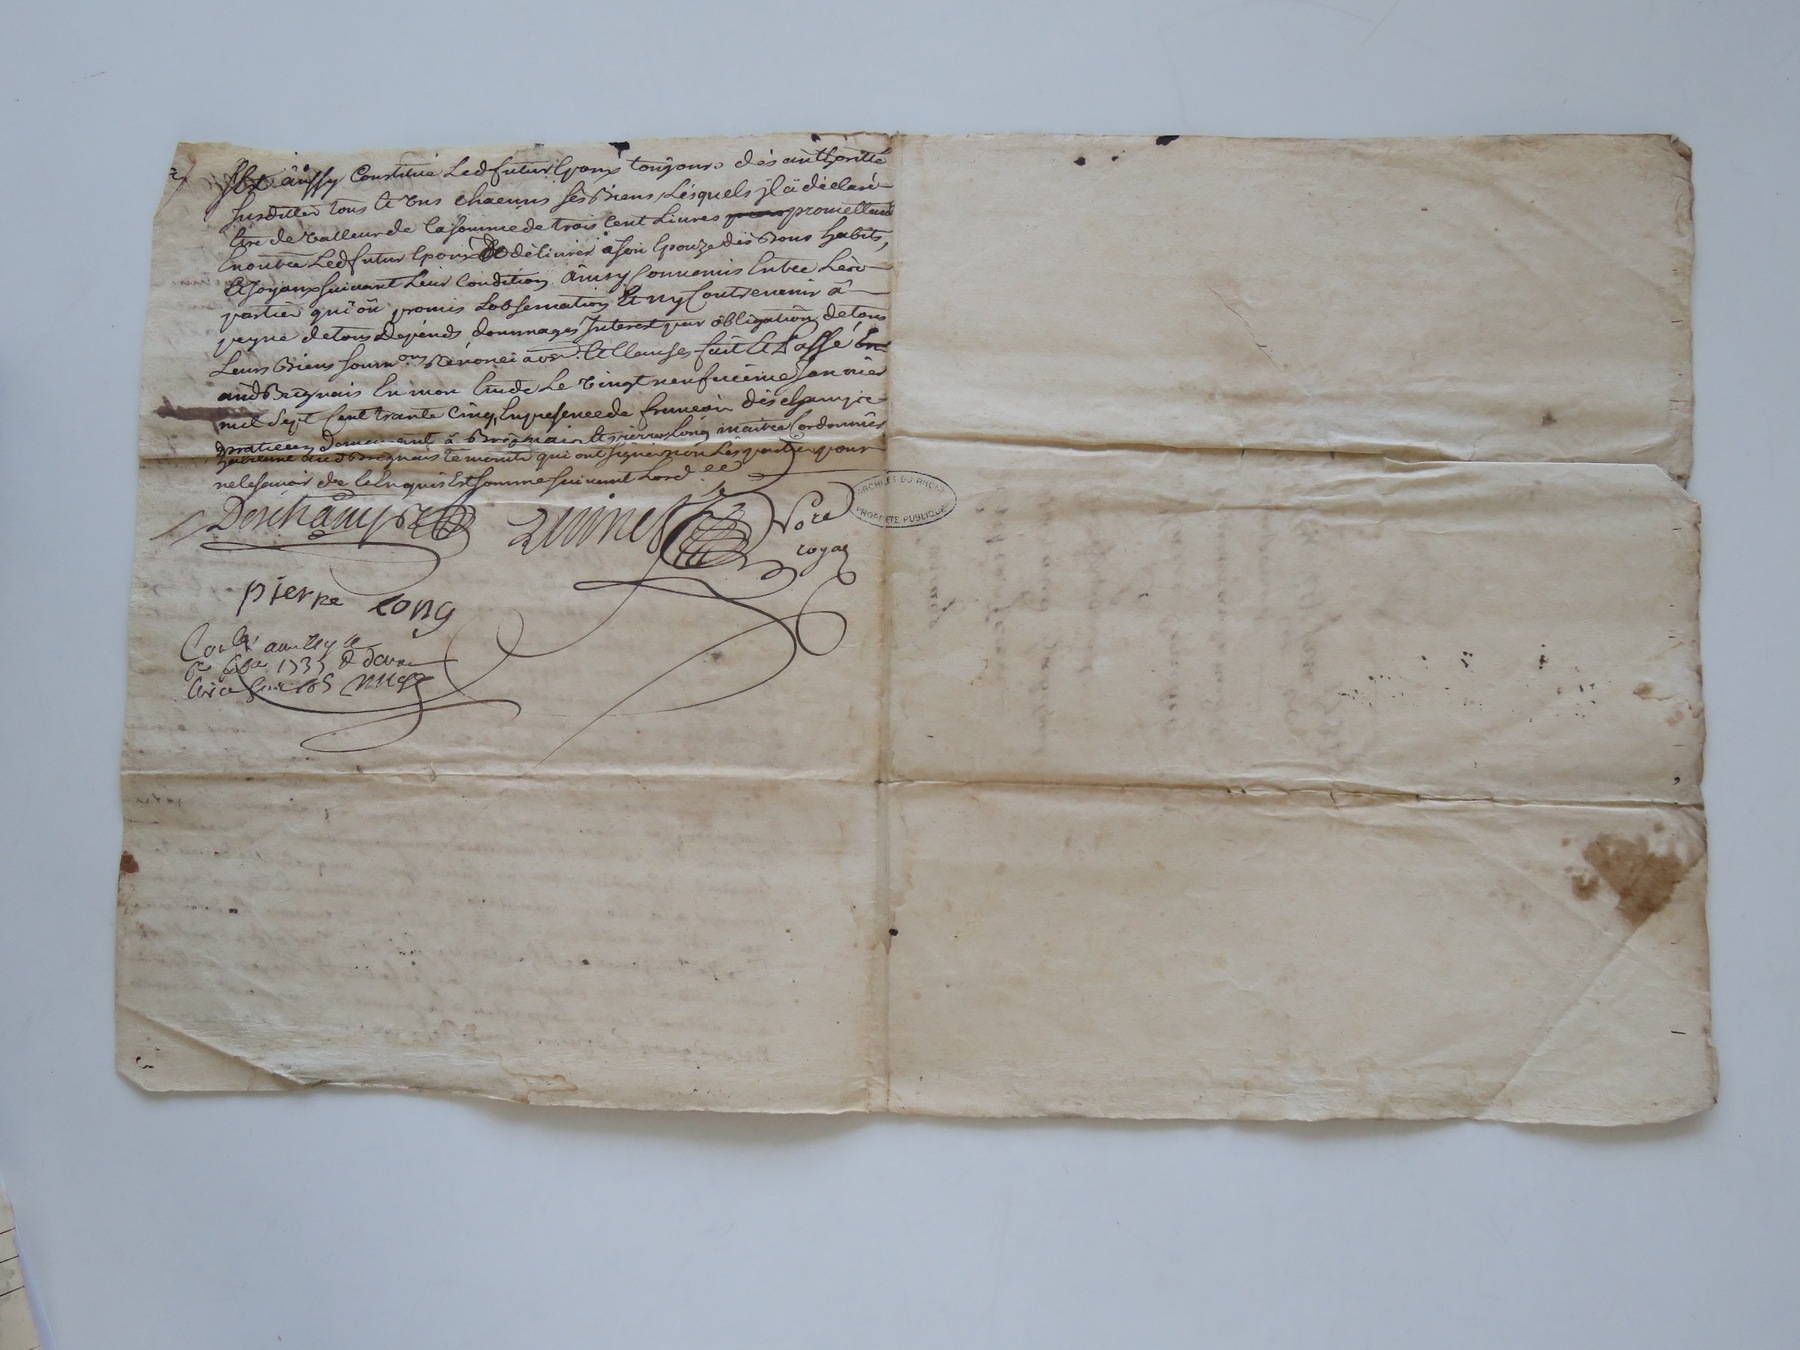 aussy Constitué Led futur Epoux toujours des authorité
susditte tous et uns chacuns ses Biens Lésquels jl a déclaré
Etre de valleur de la somme de trois cent Livres promettant
En outre Led futur Epoux de délivrer a son Epouze dés Bons habits,
et joyaux suivant Leur Condition Ainsy Convenus Entre Lésd
parties qui on promis L'observation Et ny Contrevenir â
peyne de tous Dépends dommages Interest par obligation de tous
Leurs Biens soum ons Renonci aon et Clauses fait et Passé
aud Brignais En mon Etude Le vingt neufvieme Janvier
mil Sept Cent trante Cinq En presence de françois déschamps
praticien demeurant â Brignais et pierre Long maitre Cordonnier
habitant aud Brignais temoints qui ont signé non Lés parties pour
ne le savoir de ce Enquis Et sommé suivant Lord ce
Deschamps
Nore
royal
pierre Long
1735
ARCHIVES DU RHONE
PROPRIETE PUBLIQUE